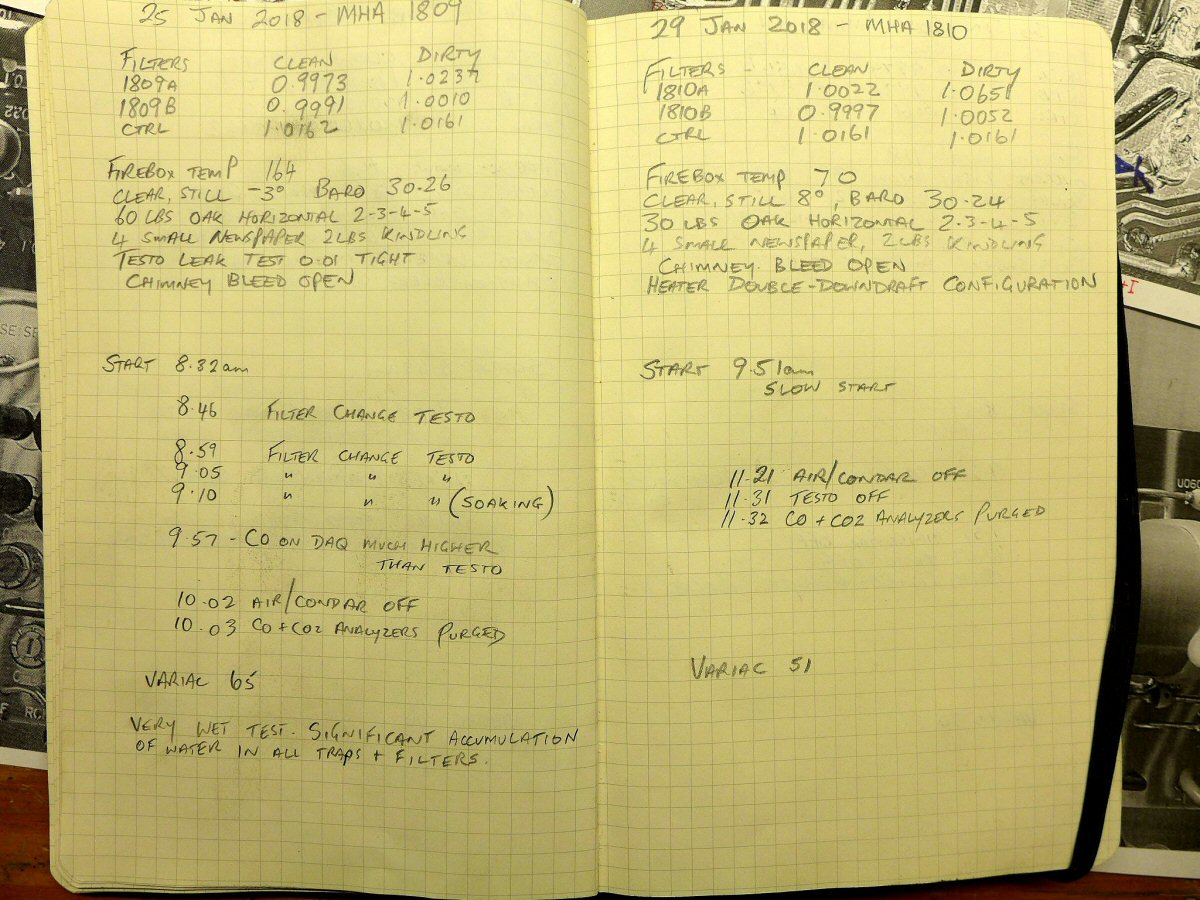 25 JAN 2018 - MHA 1809
FILTERS CLEAN DIRTY
1809A 0.9973 1.0237
1809B 0.9991 1.0010
CTRL 1.0162 1.0161
FIREBOX TEMP 164
CLEAR, STILL -3° BARO 30.26
60 LBS OAK HORIZONTAL 2-3-4-5
4 SMALL NEWSPAPER 2LBS KINDLING
TESTO LEAK TEST 0.01 TIGHT
CHIMNEY BLEED OPEN
START 8.32am
8.46 FILTER CHANGE TESTO
8.59 FILTER CHANGE TESTO
9.05 " " "
9.10 " " " (SOAKING)
9.57 - CO ON DAQ MUCH HIGHER
THAN TESTO
10.02 AIR/CONDAR OFF
10.03 CO + CO2 ANALYZERS PURGED
VARIAC 65
VERY WET TEST. SIGNIFICANT ACCUMULATION
OF WATER IN ALL TRAPS + FILTERS.
29 JAN 2018 - MHA 1810
FILTERS - CLEAN DIRTY
1810A 1.0022 1.0651
1810B 0.9997 1.0052
CTRL 1.0161 1.0161
FIREBOX TEMP 70
CLEAR, STILL 8°, BARO 30.24
30 LBS OAK HORIZONTAL 2-3-4-5
4 SMALL NEWSPAPER, 2LBS KINDLING
CHIMNEY BLEED OPEN
HEATER DOUBLE-DOWNDRAFT CONFIGURATION
START 9.51am
SLOW START
11.21 AIR/CONDAR OFF
11.31 TESTO OFF
11.32 CO + CO2 ANALYZERS PURGED
VARIAC 51